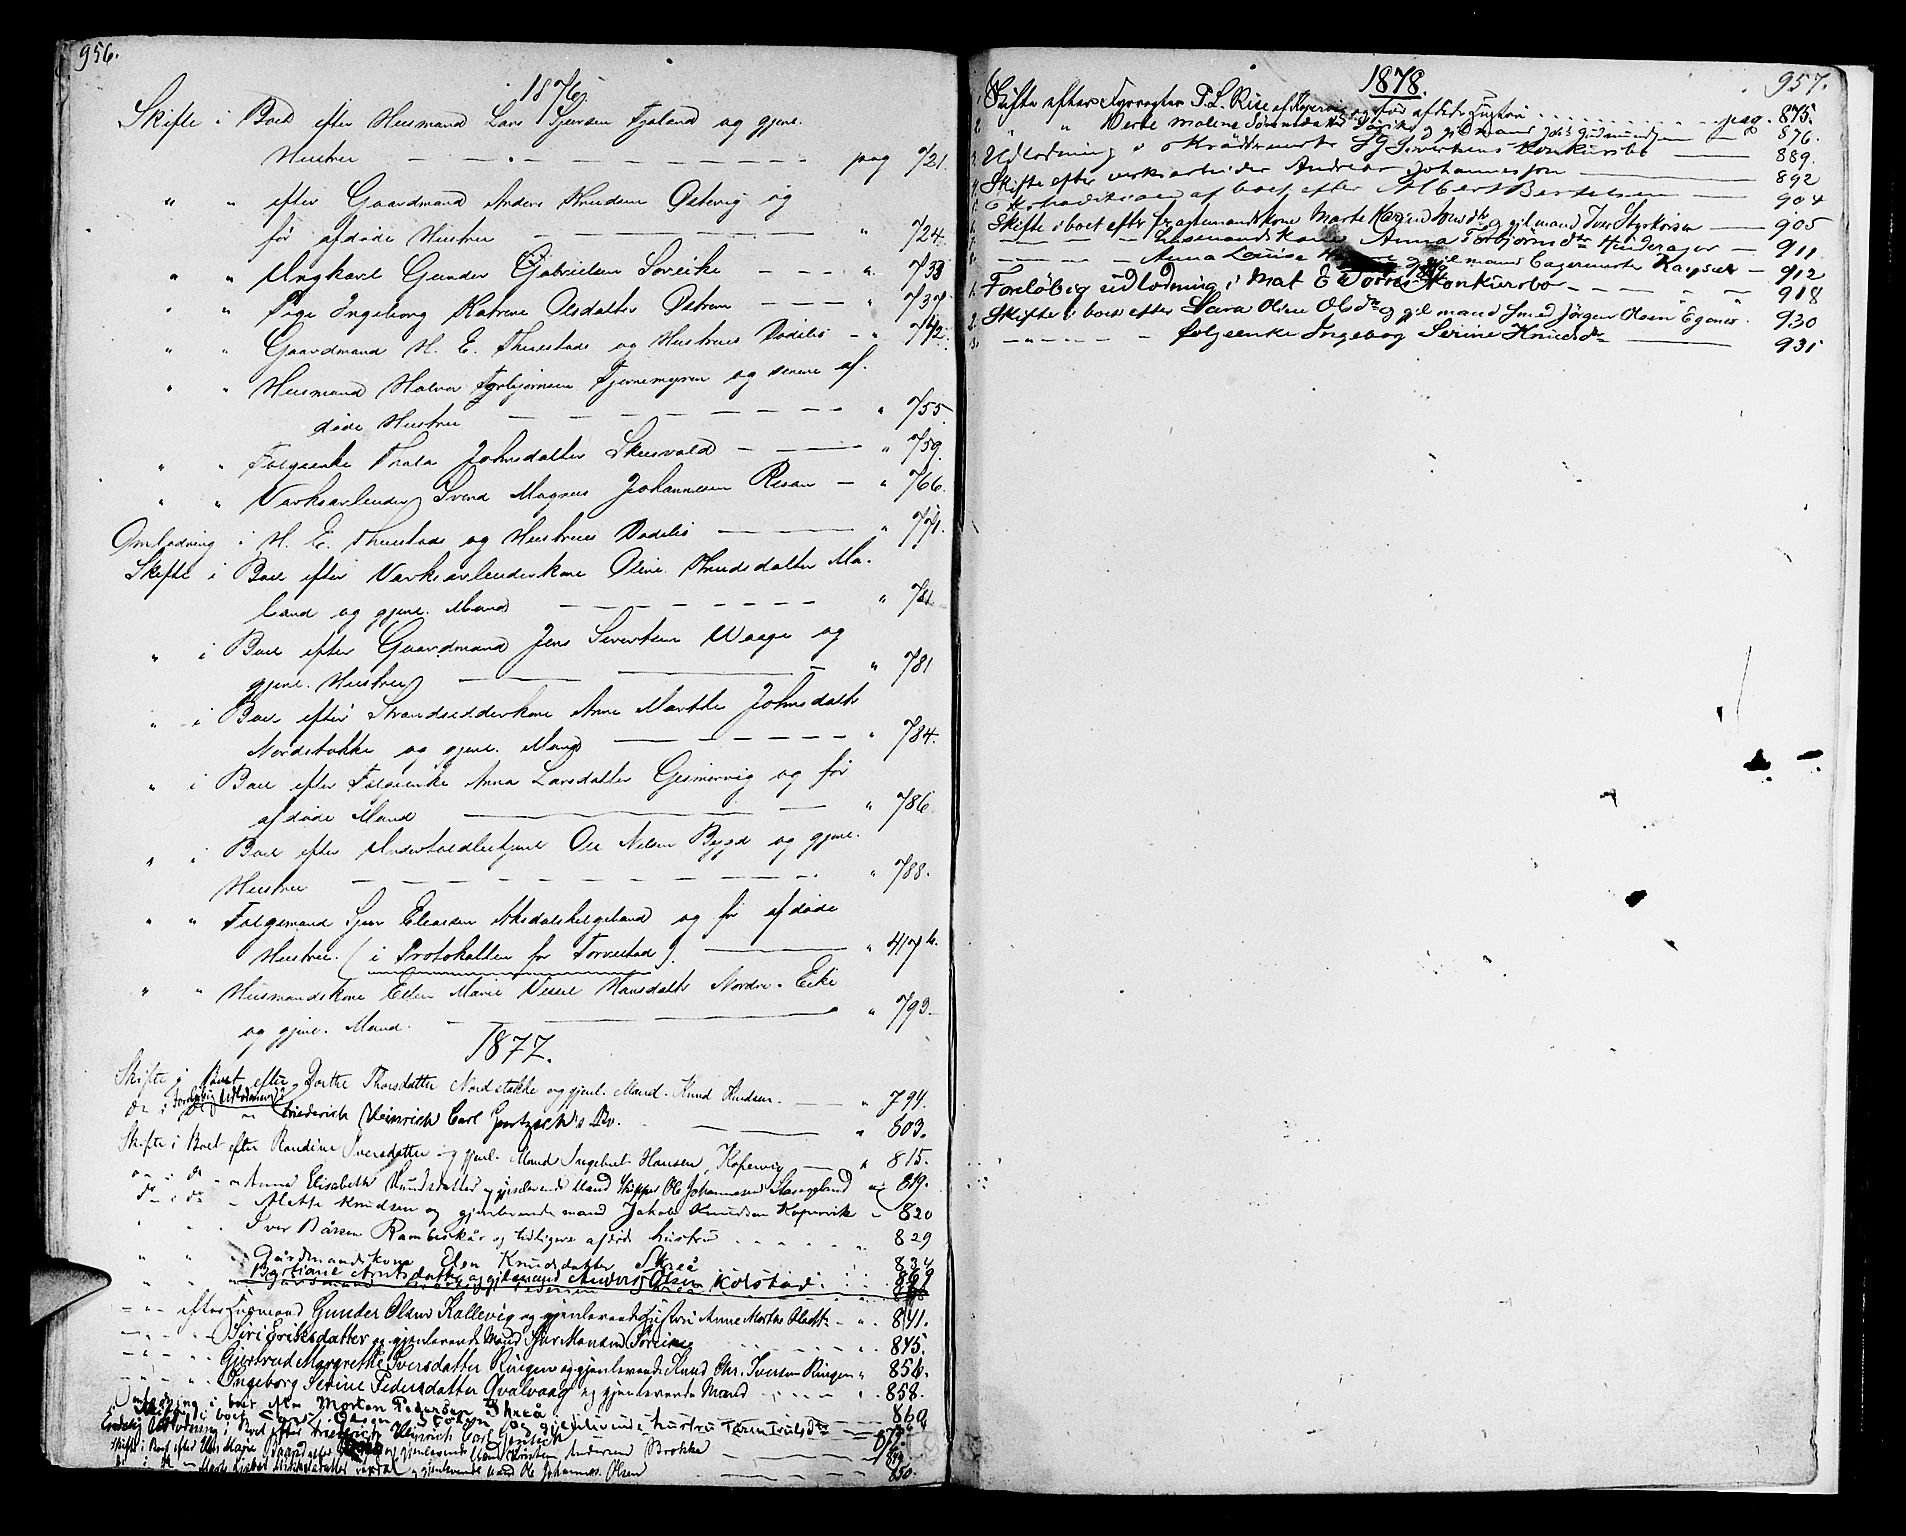 956.
1876
Skifte i Boet efter Husmand Lars Sjursen Fjoland og gjenl.
Hustru — — — pag 721.
" " efter Gaardmand Anders Knudsen Østevig og
før afdøde Hustru — " 724.
" " Ungkarl Gunder Gabrielsen Søreike — — — " 733
" " Pige Ingeborg Katrine Olsdatter Østrem — — — " 737.
" " Gaardmand H. E. Thuestads og Hustrues Dødsbo — " 742.
" " Husmand Halvor Torbjørnsen Fjernemyren og senere af-
døde Hustru — — — " 755.
" " Folgeenke Thala Johnsdatter Skeisvold — — " 759.
" " Værksarbeider Svend Magnus Johannesen Resan — " 766.
Omlodning i H. E. Thuestads og Hustrues Dødsbo — " 771.
Skifte i Boet efter Værksarbeiderkone Oline Knudsdatter Ma-
land og gjenl. Mand — — — " 781
" i Boet efter Gaardmand Jens Sivertsen Waage og
gjenl. Hustru — — " 781
" i Boet efter Strandsidderkone Anne Marthe Johnsdatter
Nordstokke og gjenl. Mand — — — " 784.
" i Boet efter Folgeenke Anna Larsdatter Gismervig og før
afdøde Mand — — " 786.
" i Boet efter Understøttelsesnydende Ole Nilsen Bygd og gjenl.
Hustru — — — " 788.
" " Folgemand Sjur Eliassen Aksdalshelgeland og før afdøde
Hustru. (i Protokollen for Torvestad). — " 417 b.
" " Husmandskone Ellen Marie Vesele Hansdatter Nordre-Eike
og gjenl. Mand. — " 793.
1877.
Skifte i Boet efter Dorthe Thorsdatter Nordstokke og gjenl. Mand Knud Knudsen. — " 794.
Do i Foreløbig Udlodning i Friederich Heinrich Carl Gentzsch's Bo. — " 803.
Skifte i Boet efter Randine Iversdatter og gjenl. Mand Ingebret Hansen, Kopervig — " 815.
" - Do - " Anne Elisabeth Knudsdatter og gjenlevende Mand Skipper Ole Johannesen Stavegland " 819.
Do i Do - Mette Knudsen og gjenlevende mand Jakob Knudsen Kopervik - 820
" " Iver Bårsen Rambeskår og tidligere afdøde hustru . . . . " 829
" " Gårdmandskone Elen Knudsdatter Skreå 834
" " Bertiane Arntsdatter og gjenl. mand Anders Olsen Kolstad. . . . 869
- " - efter Husmand Gunder Olsen Kallevig og gjenlevende Hustru Anne Marthe Olsdtr - " 841.
- " - " Siri Eriksdatter og gjenlevende Mand Sjur Monsen Søreine . . . . " 845.
- " - " Gjertrud Margrethe Iversdatter Ringen og gjenlevende Mand Chr. Iversen Ringen " 856.
- " - " Ingeborg Serine Pedersdatter Qvalvaag og gjenlevende Mand . . . . " 858.
Omlodning i boet efter Morten Pedersen Skreå — 860
Skifte i boet Olsen Stolen og gjenlevende hustru
Endelig Udlodning i Boet efter Friederich Heinrich Carl Gentzsch —
Skifte i Boet efter gjenlevende Mand Andersen Brekke — 849
Do i Do — Marthe og gjenlevende mand Ole Johannes Olsen — 850.
957.
1878.
1. Skifte efter Fyrvogter P. L. Riise af Kopervig og før afdøde Hustru . . . . . . pag. 875.
2. " " Berte Malene Sørensdatter og gjl mand Gudmundsen — 876.
3. Udlodning i skræddermester Sivertsens Konkursbo — 889.
4. Skifte efter verksarbeider Andreas Johannessen — 892
5. Extradition af boet efter Albert Bertelsen — 904
6. Skifte i boet efter Gaardmandskone Marte Karine Knudsdtr og gjl mand Iver Styrkorsen — 905
7. — — — Husmandskone Anna Torbjørnsdtr Hinderager — 911
8. — — — Anna Louise og gjl mand Bagermester Kayser — 912
1879
1. Foreløbig udlodning i Mat E Torres Konkursbo — — — 918
2. Skifte i boet efter Sara Oline Olsdtr og gjl mand Smed Jörgen Olsen Eganes . 930
3. — " — " — Folgeenke Ingeborg Serine Knudsdtr — 931